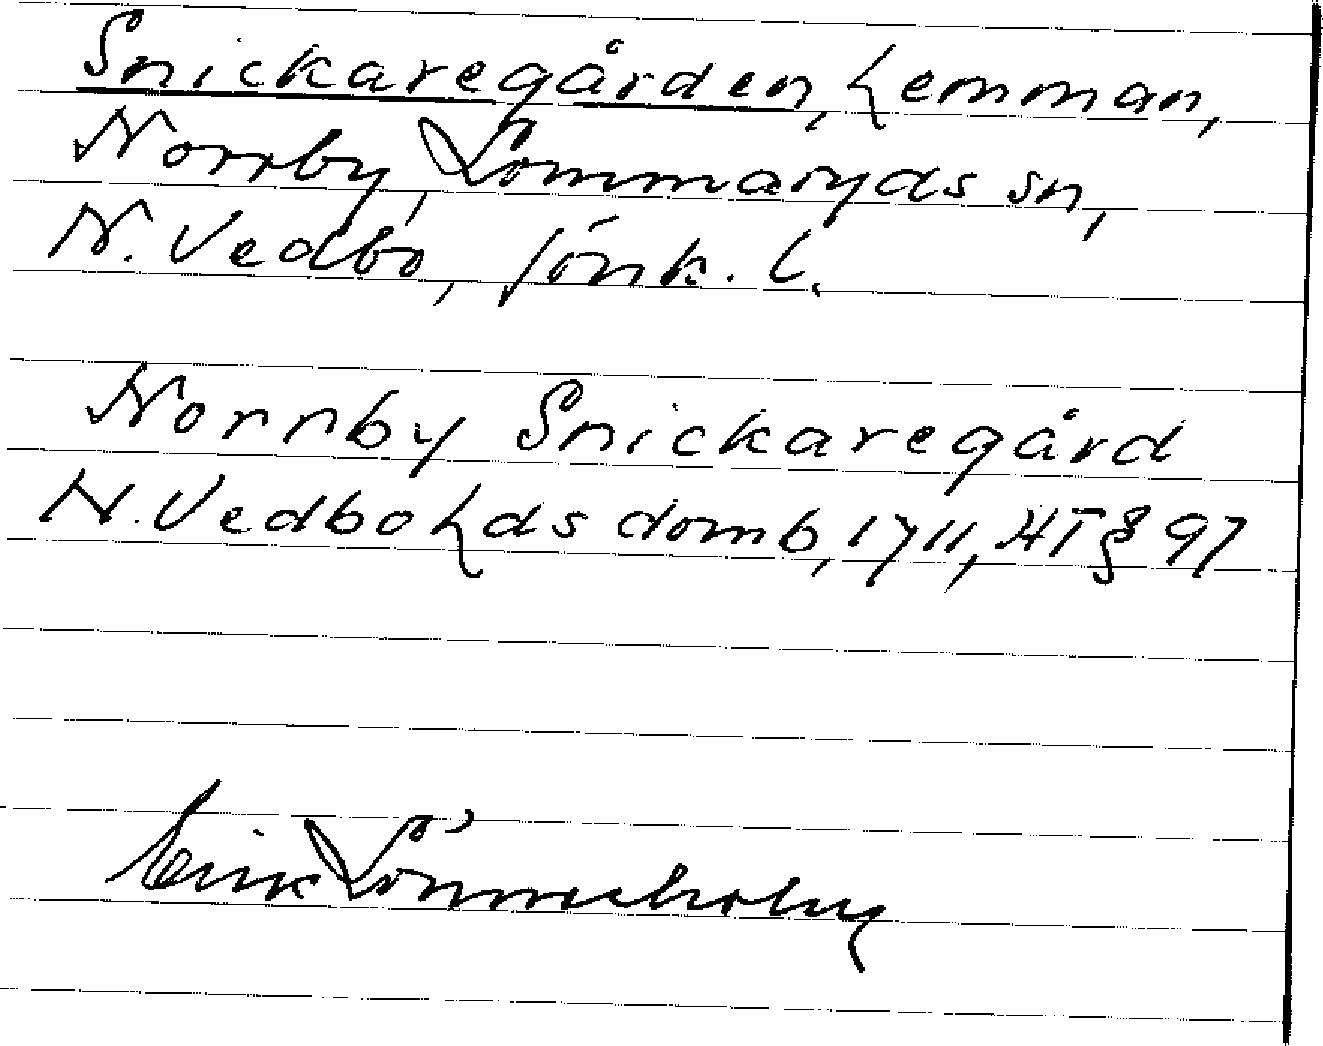 Snickaregården, Lemman,
Norrby, Lommaryds sn,
N. Vedbo, Jönk. l.
Norrby Snickaregård
N. Vedbo hds domb, 1711, HT § 97
Erik Lönnerholm